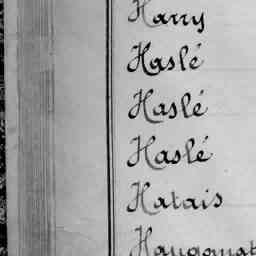 Harry
Haslé
Haslé
Haslé
Hatais